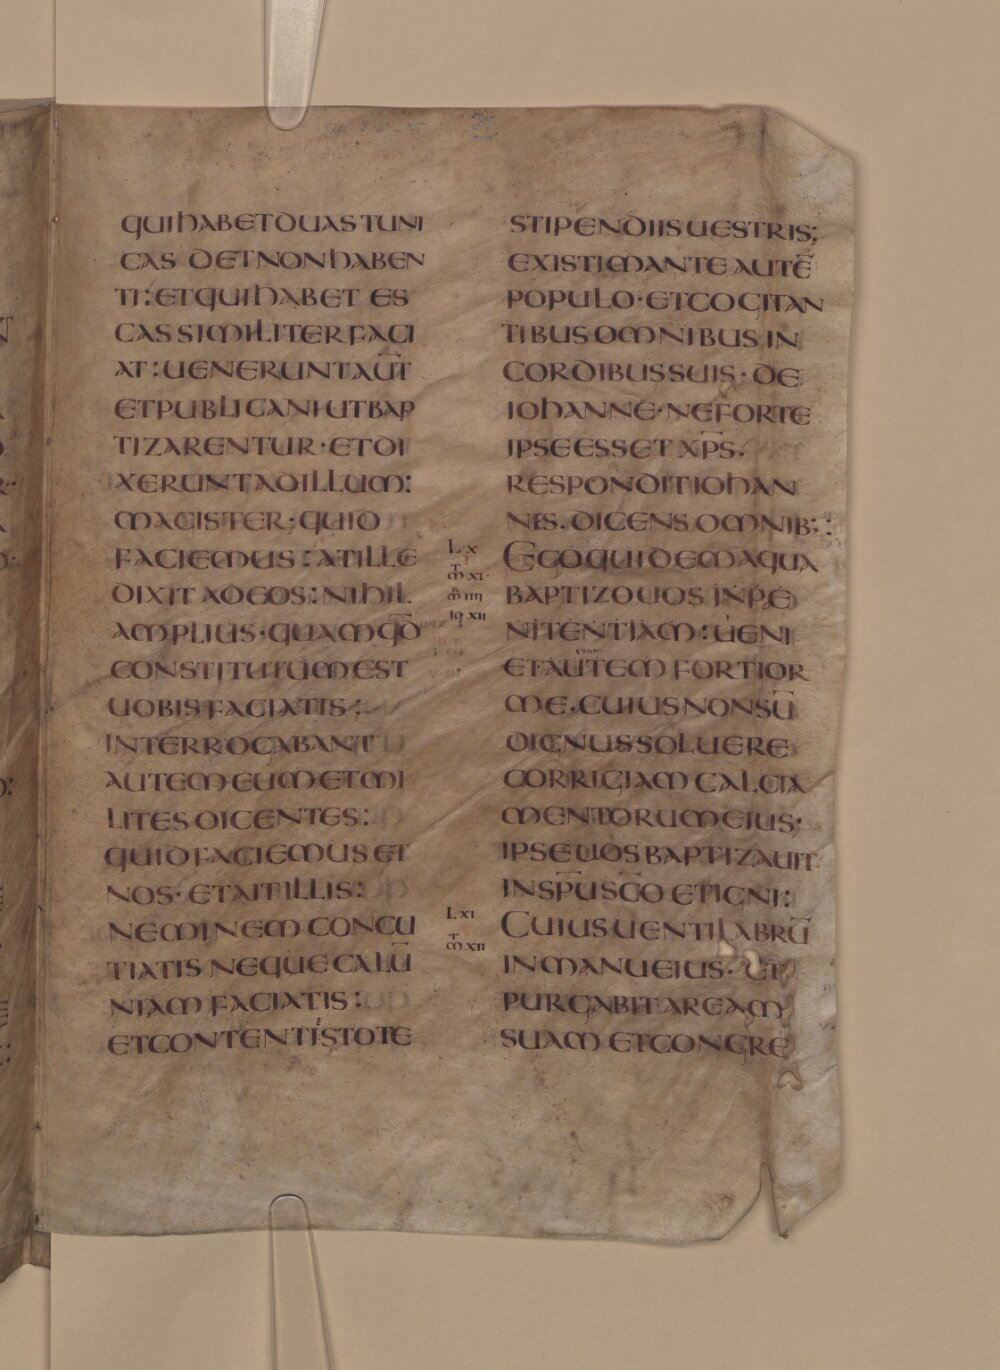 QUIHABETDUASTUNI
CAS DETNONHABEN
TI:ETQUIHABET ES
CASSIMILITERFACI
AT:UENERUNTAUT̅
ETPUBLICANIUTBAP
TIZARENTUR·ETDI
XERUNTADILLUM:
MAGISTER·QUID
FACIEMUS:ATILLE
DIXIT ADEOS:NIHIL
AMPLIUS·QUAMQD̅
CONSTITUTUMEST
UOBISFACIATIS:
INTERROGABANT
AUTEMEUMETMI
LITESDICENTES:
QUIDFACIEMUSET
NOS·ETAITILLIS:
NEMINEM CONCU
TIATIS NEQUECALU̅
NIAM FACIATIS:
ETCONTENTIESTOTE
STIPENDIISUESTRIS;
EXISTIMANTE AUTE̅
POPULO·ETCOGITAN
TIBUSOMNIBUS IN
CORDIBUSSUIS·DE
IOHANNE·NEFORTE
IPSEESSET XP̅S.
RESPONDITIOHAN
NIS.DICENSOMNIB;:
LX
EGOQUIDEMAQUA
T
M XI·
M̅ IIII
BAPTIZOUOS INPE
IO XII
NITENTIAM:UENI
ETAUTEM FORTIOR
ME.CUIUSNONSU̅
DIGNUSSOLUERE
CORRIGIAM CALCIA
MENTORUMEIUS·
IPSEUOSBAPTIZAUIT
INSP̅USC̅O ETIGNI:
LXI
CUIUSUENTILABRU̅
T
M XII
INMANUEIUS· ET
PURGABITAREAM
SUAM ETCONGRE